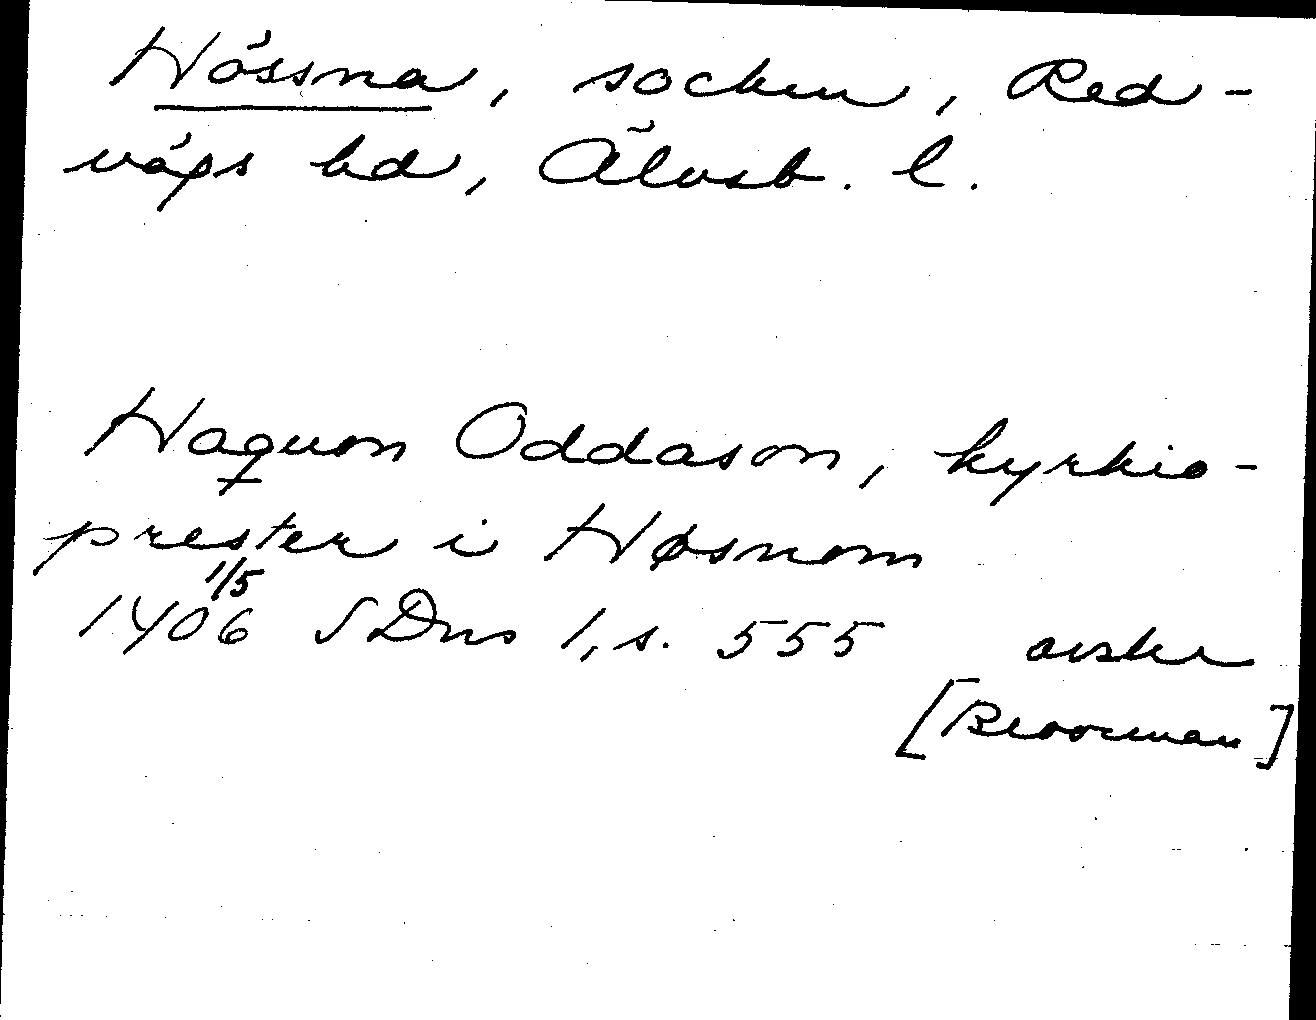 Hössna, socken, Red-
vägs hd, Älvsb. l.
Haquon Oddason, kyrkio-
prester i Høsnom
1/5
1406 SDns 1, s. 555 avskr
[Beooreman]